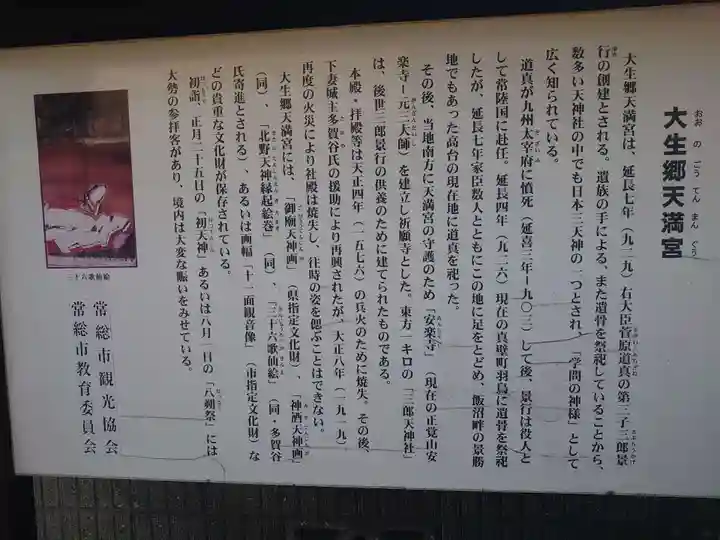 大生郷天満宮
おおのごうてんまんぐう
大生郷天満宮は、延長七年（九二九）右大臣菅原道真の第三子三郎景
行の創建とされる。遺族の手による、また遺骨を祭祀していることから、
数多い天神社の中でも日本三天神の一つとされ、「学問の神様」として
広く知られている。
道真が九州太宰府に憤死（延喜三年ー九〇三）して後、景行は役人と
して常陸国に赴任。延長四年（九二六）現在の真壁町羽鳥に遺骨を祭祀
したが、延長七年家臣数人とともにこの地に足をとどめ、飯沼畔の景勝
地でもあった高台の現在地に道真を祀った。
その後、当地南方に天満宮の守護のため「安楽寺」（現在の正覚山安
楽寺ー元三大師）を建立し祈願寺とした。東方一キロの「三郎天神社」
は、後世三郎景行の供養のために建てられたものである。
本殿・拝殿等は天正四年（一五七六）の兵火のために焼失。その後、
下妻城主多賀谷氏の援助により再興されたが、大正八年（一九一九）、
再度の火災により社殿は焼失し、往時の姿を偲ぶことはできない。
大生郷天満宮には、「御廟天神画」（県指定文化財）、「神酒天神画」
（同）、「北野天神縁起絵巻」（同）、「三十六歌仙絵」（同・多賀谷
氏寄進とされる）、あるいは画幅「十一面観音像」（市指定文化財）な
どの貴重な文化財が保存されている。
初詣、正月二十五日の「初天神」あるいは八月一日の「八朔祭」には
大勢の参拝客があり、境内は大変な賑いをみせている。
常総市観光協会
常総市教育委員会
三十六歌仙絵